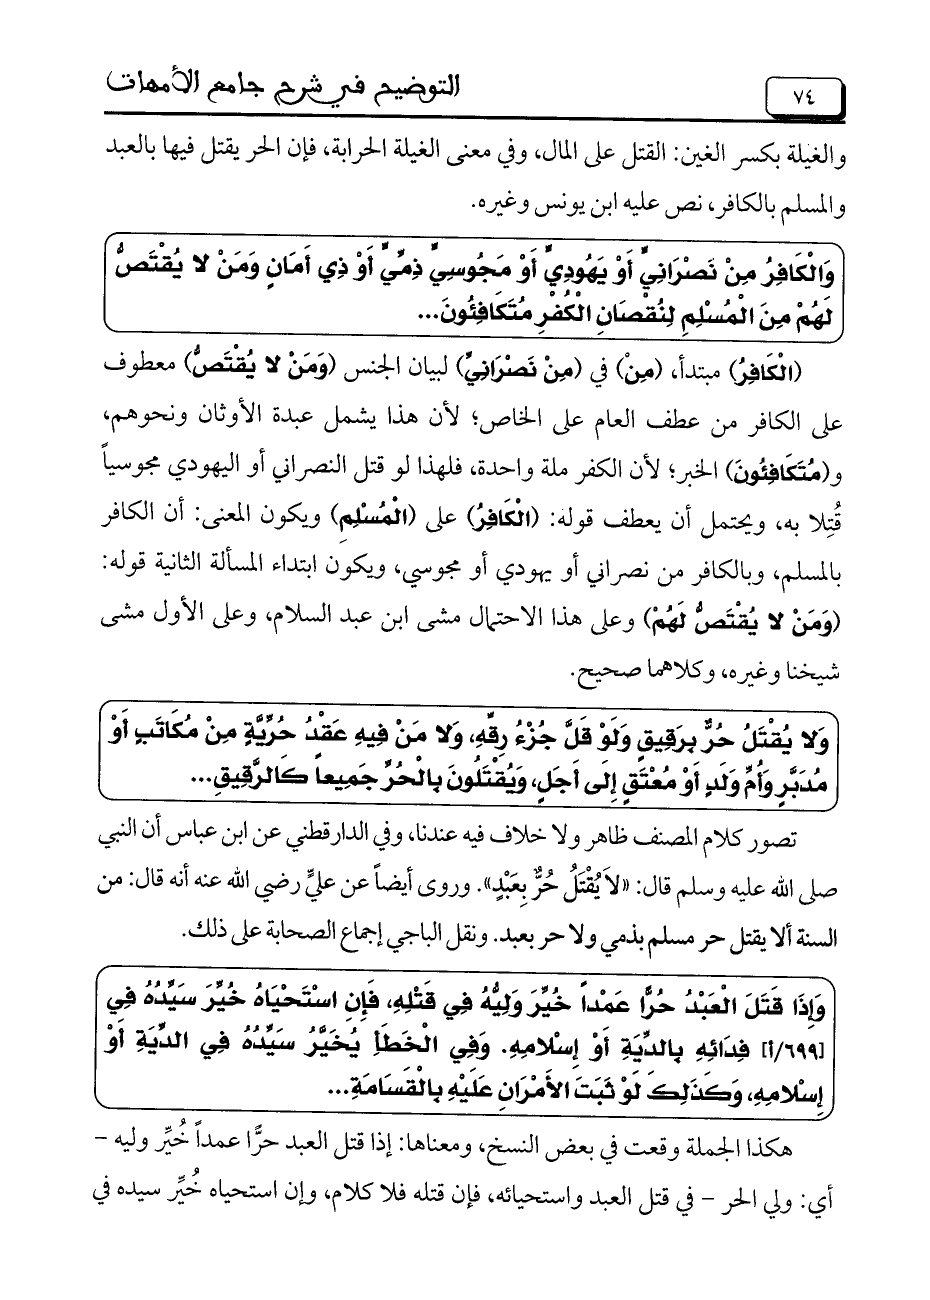 ٧٤
التوضيح في شرح جامع الأمهات
والغيلة بكسر الغين: القتل على المال، وفي معنى الغيلة الحرابة، فإن الحر يقتل فيها بالعبد
والمسلم بالكافر، نص عليه ابن يونس وغيره.
وَالْكَافِرُ مِنْ نَصْرَانِيٍّ أَوْ يَهُودِيٍّ أَوْ مَجُوسِيٍّ ذِمِّيٍّ أَوْ ذِي أَمَانٍ وَمَنْ لا يُقْتَصُّ
لَهُمْ مِنَ الْمُسْلِمِ لِنُقْصَانِ الْكُفْرِ مُتَكَافِئُونَ...
(الْكَافِرُ) مبتدأ، (مِنْ) في (مِنْ نَصْرَانِيٍّ) لبيان الجنس (وَمَنْ لا يُقْتَصُّ) معطوف
على الكافر من عطف العام على الخاص؛ لأن هذا يشمل عبدة الأوثان ونحوهم،
و(مُتَكَافِئُونَ) الخبر؛ لأن الكفر ملة واحدة، فلهذا لو قتل النصراني أو اليهودي مجوسياً
قُتِلا به، ويحتمل أن يعطف قوله: (الْكَافِرُ) على (الْمُسْلِمِ) ويكون المعنى: أن الكافر
بالمسلم، وبالكافر من نصراني أو يهودي أو مجوسي، ويكون ابتداء المسألة الثانية قوله:
(وَمَنْ لا يُقْتَصُّ لَهُمْ) وعلى هذا الاحتمال مشى ابن عبد السلام، وعلى الأول مشى
شيخنا وغيره، وكلاهما صحيح.
وَلا يُقْتَلُ حُرٌّ بِرَقِيقٍ وَلَوْ قَلَّ جُزْءُ رِقِّهِ، وَلا مَنْ فِيهِ عَقْدُ حُرِّيَّةٍ مِنْ مُكَاتَبٍ أَوْ
مُدَبَّرٍ وَأُمِّ وَلَدٍ أَوْ مُعْتَقٍ إِلَى أَجَلٍ، وَيُقْتَلُونَ بِالْحُرِّ جَمِيعاً كَالرَّقِيقِ...
تصور كلام المصنف ظاهر ولا خلاف فيه عندنا، وفي الدارقطني عن ابن عباس أن النبي
صلى الله عليه وسلم قال: «لاَ يُقْتَلُ حُرٌّ بِعَبْدٍ». وروى أيضاً عن عليٍّ رضي الله عنه أنه قال: من
السنة ألا يقتل حر مسلم بذمي ولا حر بعبد. ونقل الباجي إجماع الصحابة على ذلك.
وَإِذَا قَتَلَ الْعَبْدُ حُرًّا عَمْداً خُيِّرَ وَلِيُّهُ فِي قَتْلِهِ، فَإِنِ اسْتَحْيَاهُ خُيِّرَ سَيِّدُهُ فِي
[٦٩٩/أ] فِدَائِهِ بِالدِّيَةِ أَوْ إِسْلامِهِ. وَفِي الْخَطَأِ يُخَيَّرُ سَيِّدُهُ فِي الدِّيَةِ أَوْ
إِسْلامِهِ، وَكَذَلِكَ لَوْ ثَبَتَ الأَمْرَانِ عَلَيْهِ بِالْقَسَامَةِ...
هكذا الجملة وقعت في بعض النسخ، ومعناها: إذا قتل العبد حرًّا عمداً خُيِّر وليه –
أي: ولي الحر – في قتل العبد واستحيائه، فإن قتله فلا كلام، وإن استحياه خُيِّر سيده في